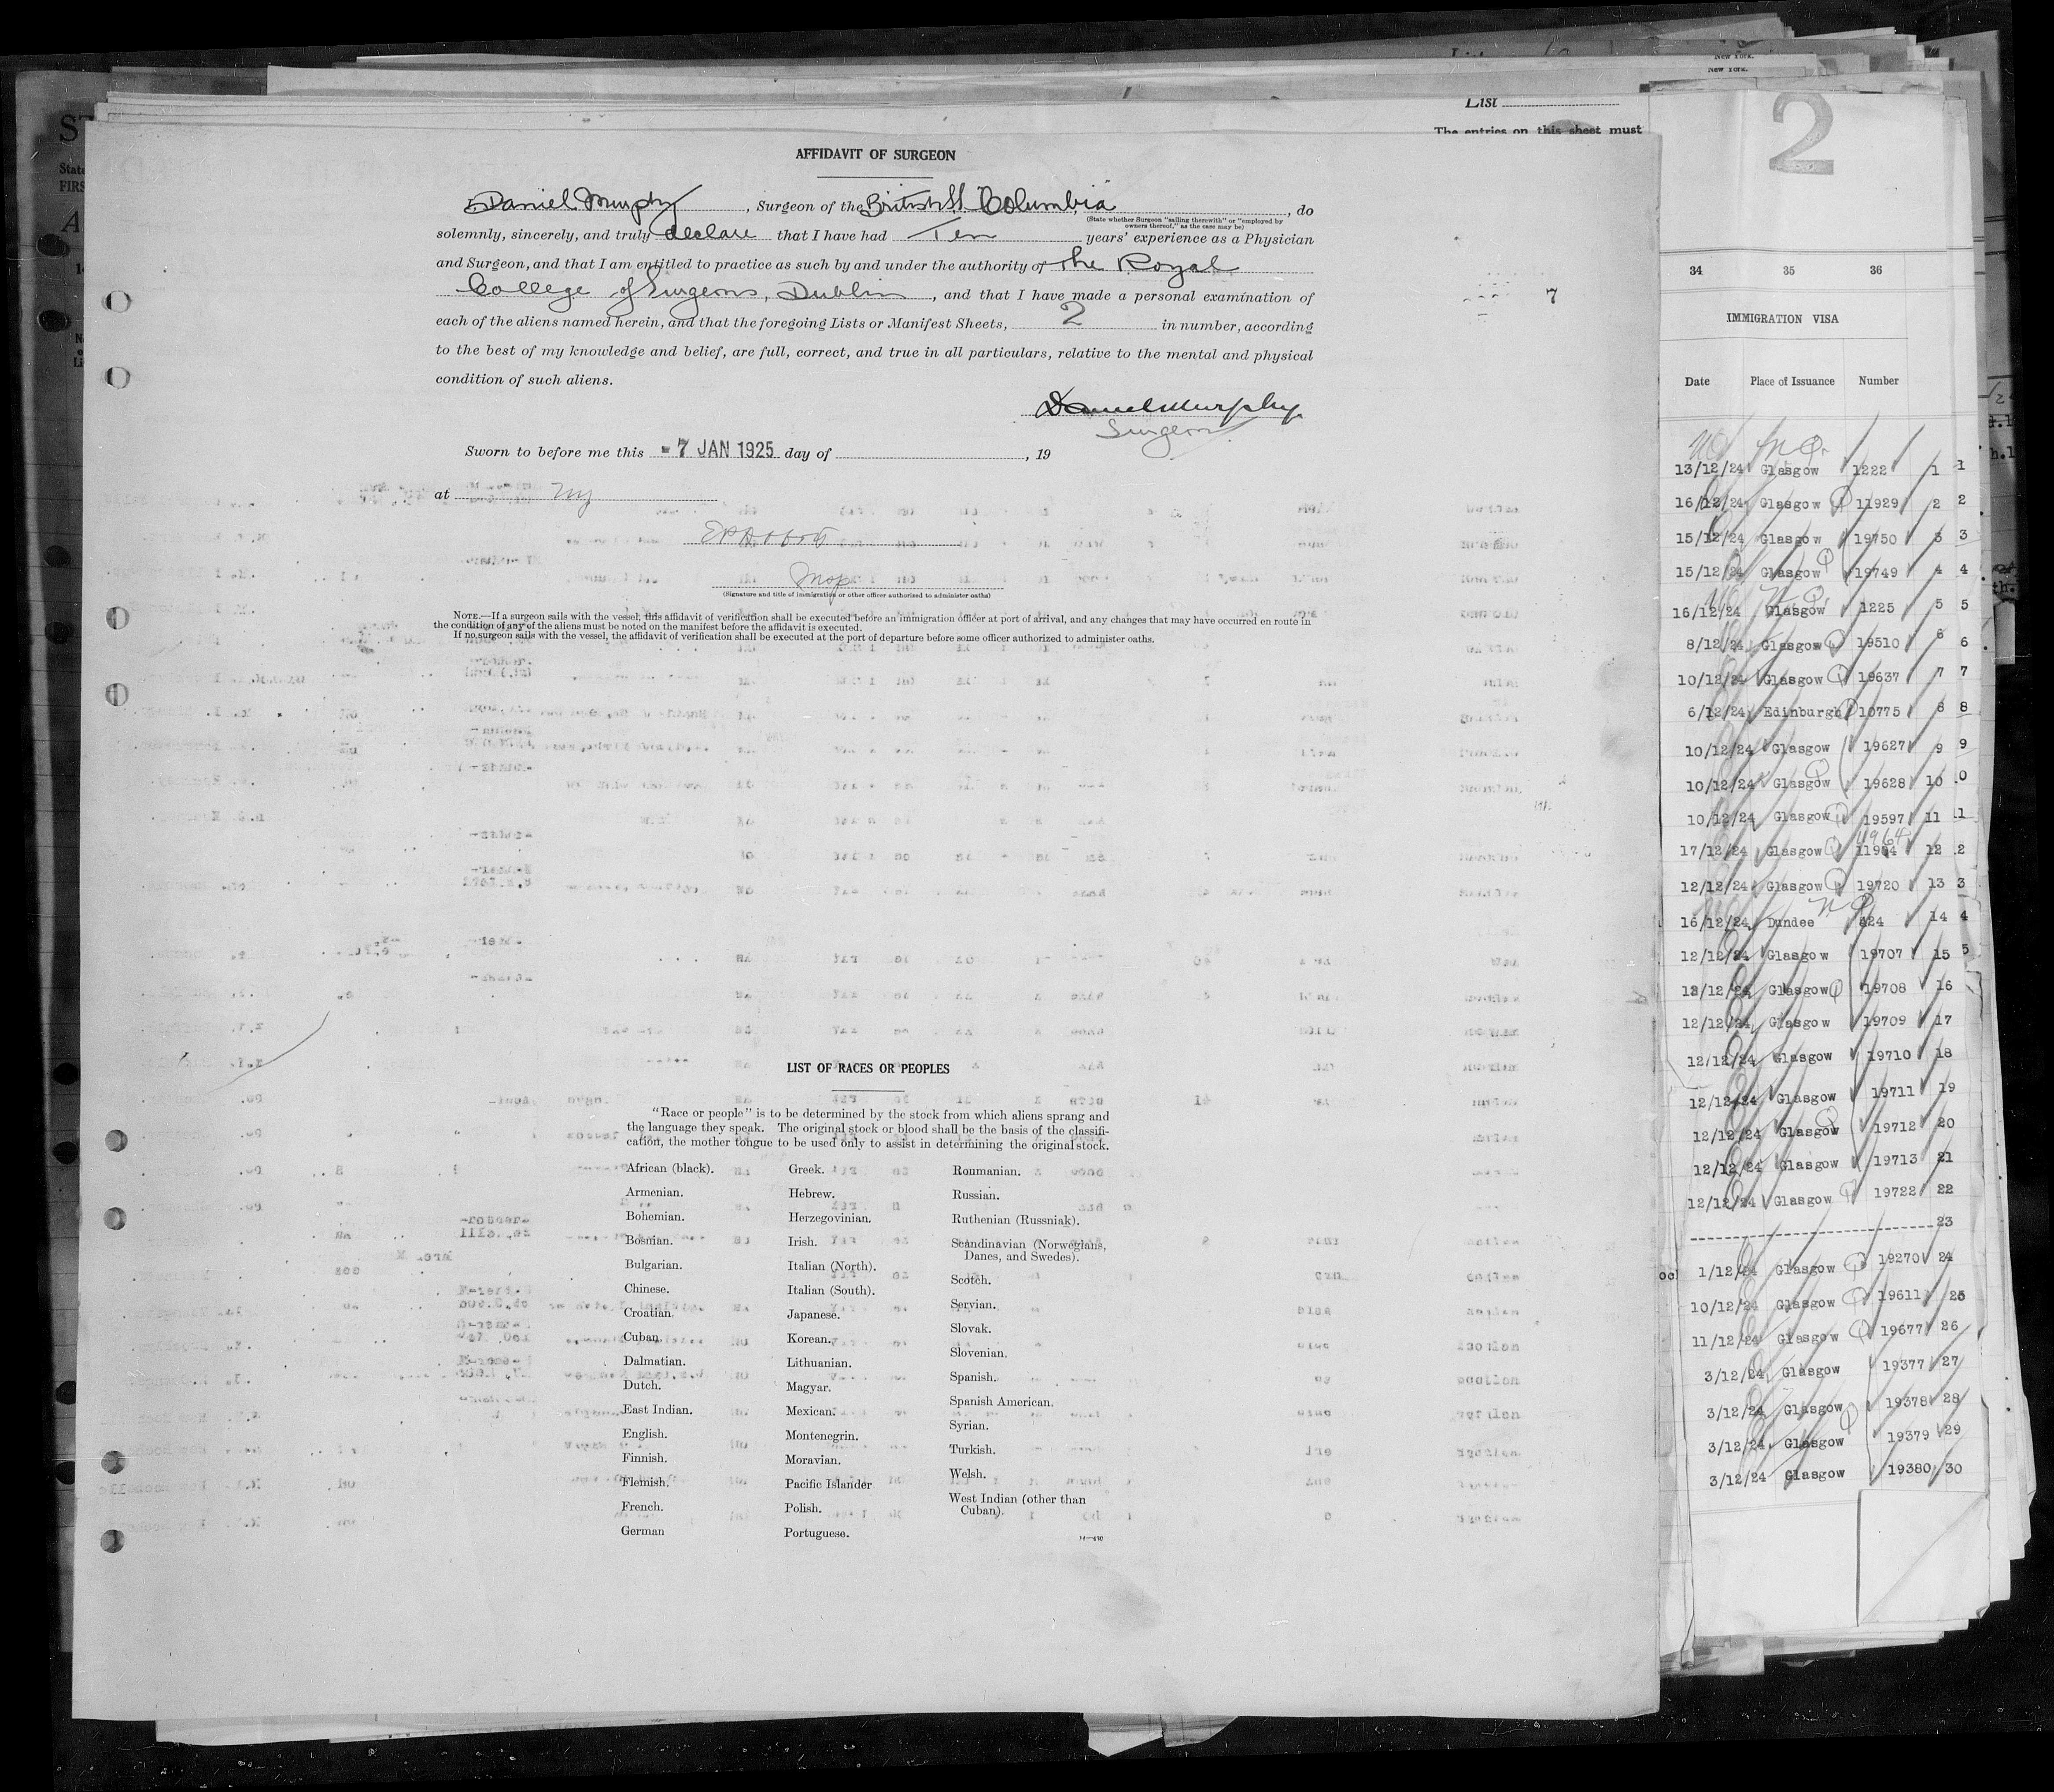 List
The entries on this sheet must
New York.
New York.
2
AFFIDAVIT OF SURGEON
I, Daniel Murphy, Surgeon of the British SS. "Columbia", do
(State whether Surgeon "sailing therewith" or "employed by
owners thereof," as the case may be)
solemnly, sincerely, and truly declare that I have had Ten years' experience as a Physician
and Surgeon, and that I am entitled to practice as such by and under the authority of The Royal
College of Surgeons, Dublin, and that I have made a personal examination of
each of the aliens named herein, and that the foregoing Lists or Manifest Sheets, 2 in number, according
to the best of my knowledge and belief, are full, correct, and true in all particulars, relative to the mental and physical
condition of such aliens.
Daniel Murphy.
Surgeon
Sworn to before me this -7 JAN 1925 day of , 19
at NY
(Signature and title of immigration or other officer authorized to administer oaths)
NOTE.—If a surgeon sails with the vessel, this affidavit of verification shall be executed before an immigration officer at port of arrival, and any changes that may have occurred en route in
the condition of any of the aliens must be noted on the manifest before the affidavit is executed.
If no surgeon sails with the vessel, the affidavit of verification shall be executed at the port of departure before some officer authorized to administer oaths.
7
LIST OF RACES OR PEOPLES
"Race or people" is to be determined by the stock from which aliens sprang and
the language they speak. The original stock or blood shall be the basis of the classifi-
cation, the mother tongue to be used only to assist in determining the original stock.
African (black).
Armenian.
Bohemian.
Bosnian.
Bulgarian.
Chinese.
Croatian.
Cuban.
Dalmatian.
Dutch.
East Indian.
English.
Finnish.
Flemish.
French.
German
Greek.
Hebrew.
Herzegovinian.
Irish.
Italian (North).
Italian (South).
Japanese.
Korean.
Lithuanian.
Magyar.
Mexican.
Montenegrin.
Moravian.
Pacific Islander
Polish.
Portuguese.
Roumanian.
Russian.
Ruthenian (Russniak).
Scandinavian (Norwegians,
Danes, and Swedes).
Scotch.
Servian.
Slovak.
Slovenian.
Spanish.
Spanish American.
Syrian.
Turkish.
Welsh.
West Indian (other than
Cuban).
34 35 36
IMMIGRATION VISA
Date Place of Issuance Number
13/12/24 Glasgow 1222 1 1
16/12/24 Glasgow 11929 2 2
15/12/24 Glasgow 19750 3 3
15/12/24 Glasgow 19749 4 4
16/12/24 Glasgow 1225 5 5
8/12/24 Glasgow 19510 6 6
10/12/24 Glasgow 19637 7 7
6/12/24 Edinburgh 10775 8 8
10/12/24 Glasgow 19627 9 9
10/12/24 Glasgow 19628 10 0
10/12/24 Glasgow 19597 11 1
17/12/24 Glasgow 12 2
12/12/24 Glasgow 19720 13 3
16/12/24 Dundee 624 14 4
12/12/24 Glasgow 19707 15 5
12/12/24 Glasgow 19708 16
12/12/24 Glasgow 19709 17
12/12/24 Glasgow 19710 18
12/12/24 Glasgow 19711 19
12/12/24 Glasgow 19712 20
12/12/24 Glasgow 19713 21
12/12/24 Glasgow 19722 22
23
1/12/24 Glasgow 19270 24
10/12/24 Glasgow 19611 25
11/12/24 Glasgow 19677 26
3/12/24 Glasgow 19377 27
3/12/24 Glasgow 19378 28
3/12/24 Glasgow 19379 29
3/12/24 Glasgow 19380 30